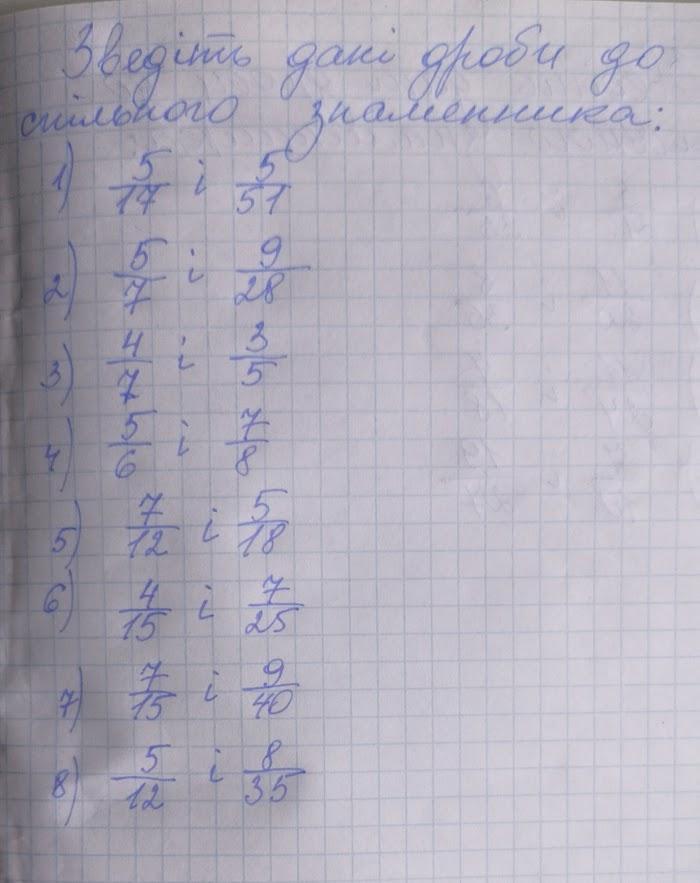 Зведіть дані дроби до
спільного знаменника:
1) 5/17 і 5/51
2) 5/7 і 9/28
3) 4/7 і 3/5
4) 5/6 і 7/8
5) 7/12 і 5/18
6) 4/15 і 7/25
7) 7/15 і 9/40
8) 5/12 і 8/35